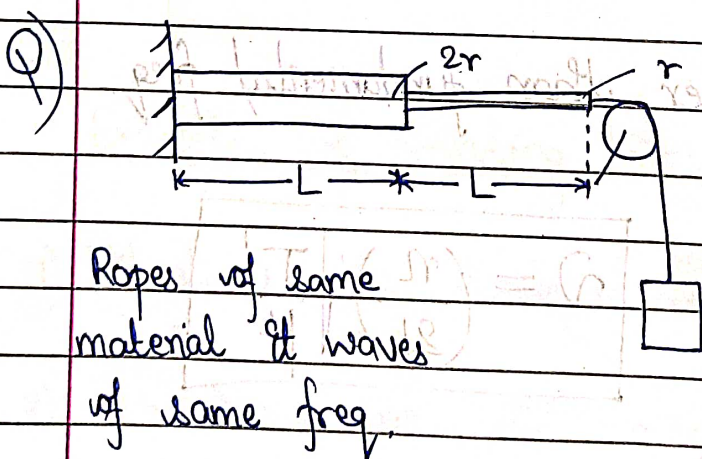 Q)
2r
r
L L
Ropes of same
material & waves
of same freq.